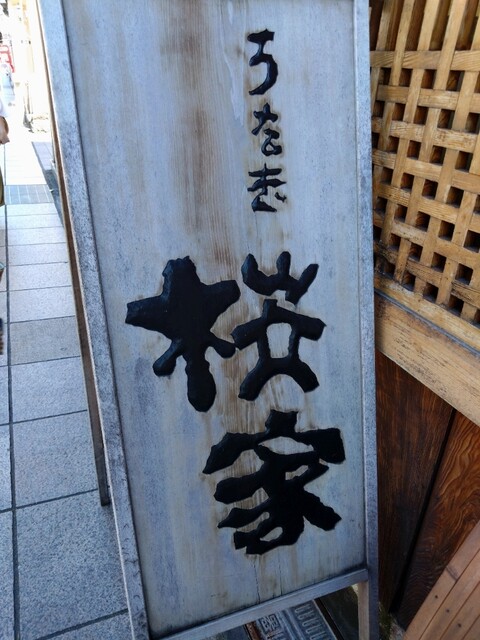 うなぎ
桜家